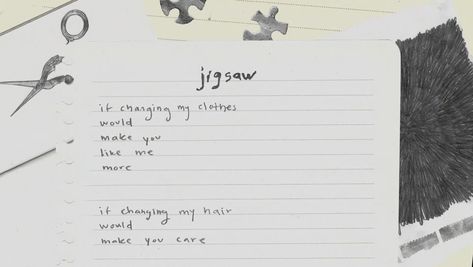 jigsaw
if changing my clothes
would
make you
like me
more
if changing my hair
would
make you care